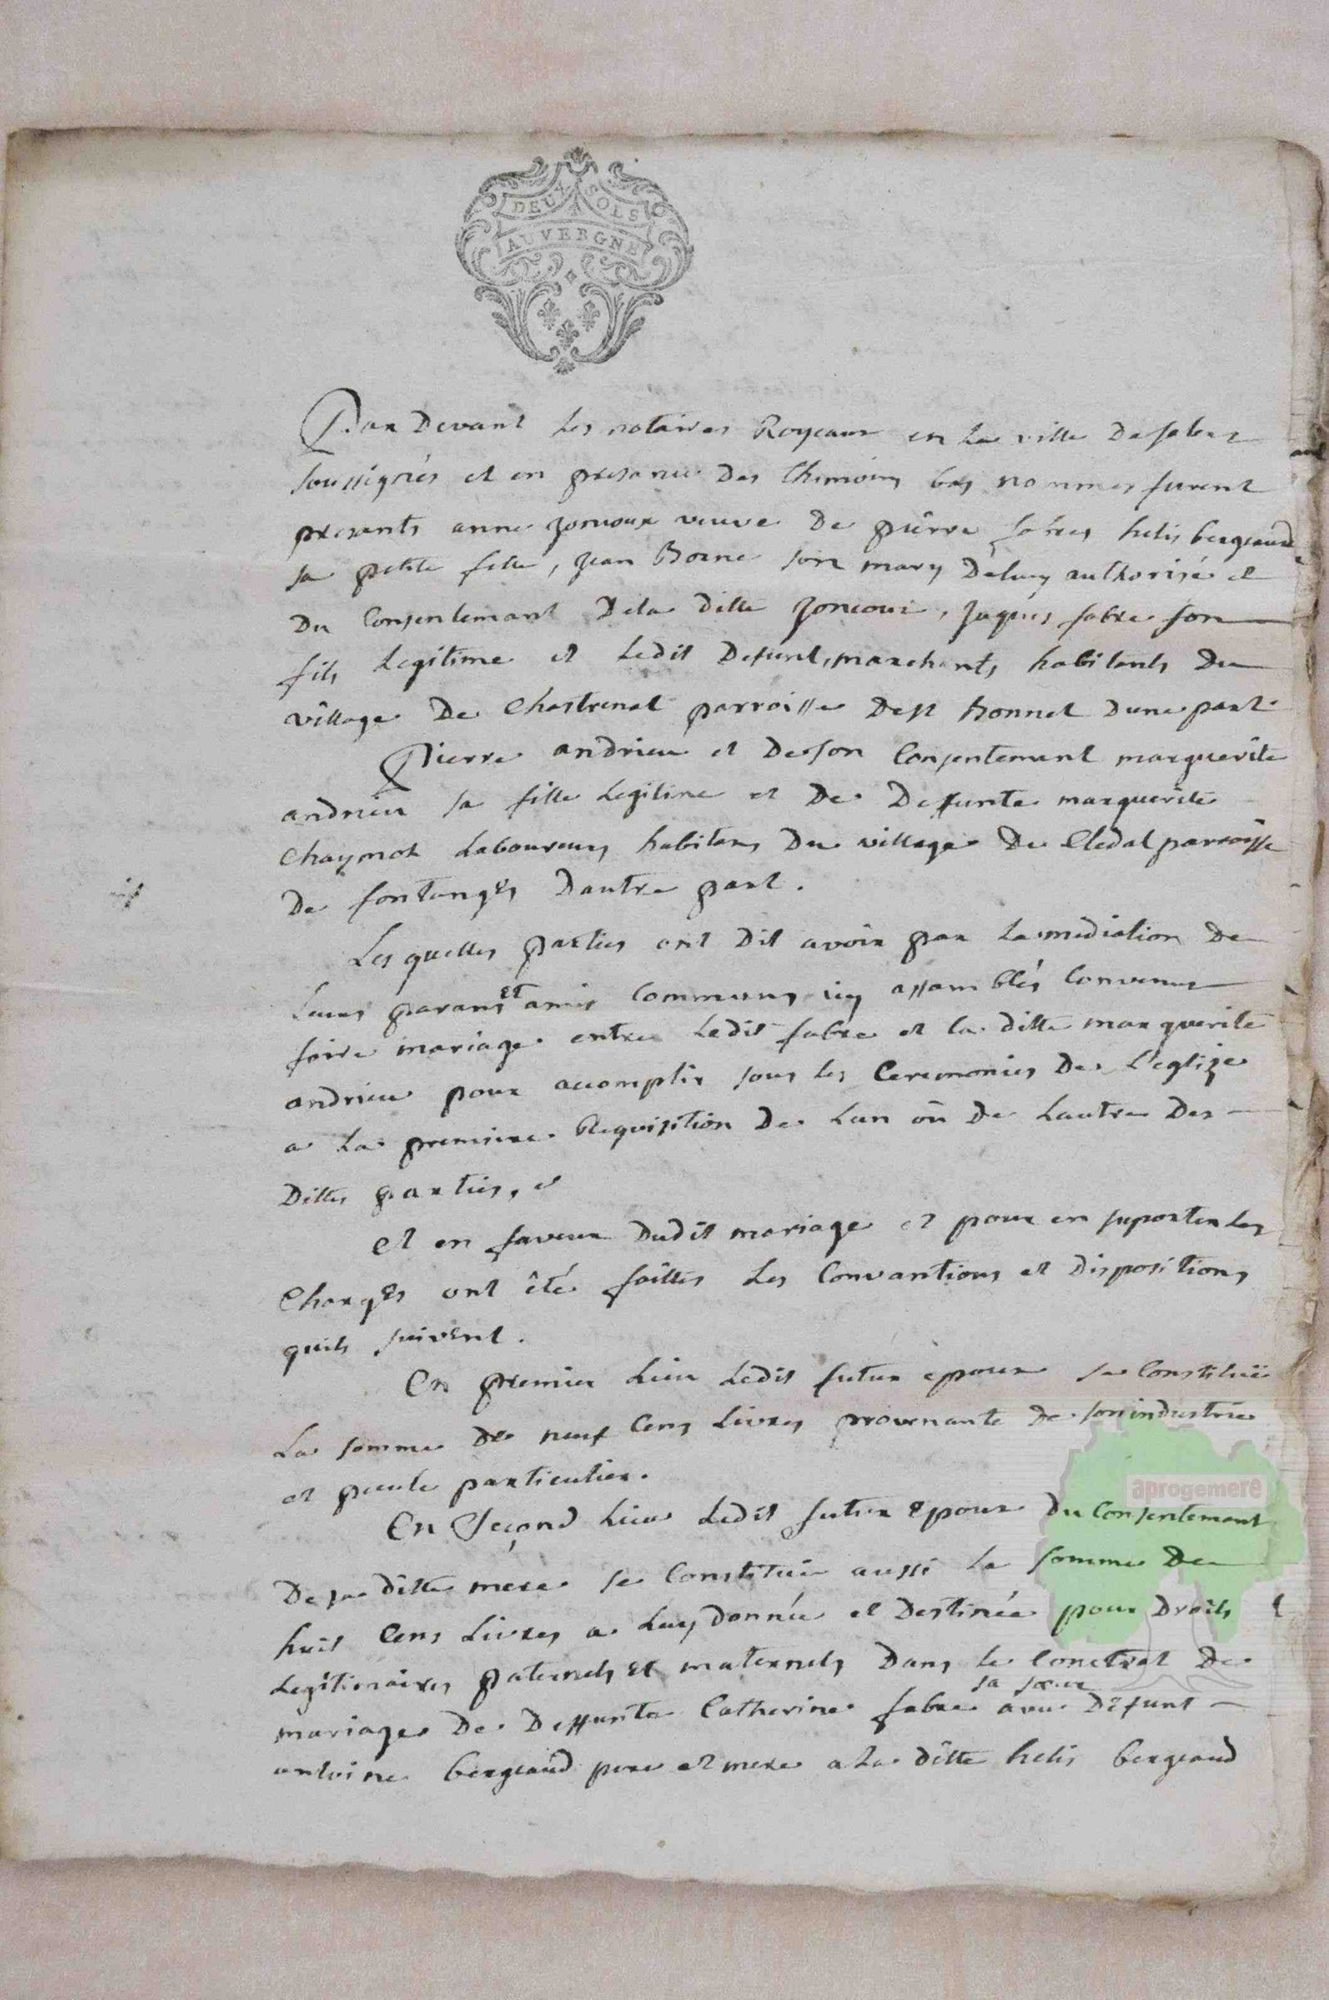 DEUX SOLS
AUVERGNE
Par Devant Les notaires Royeaux en La ville De salers
soussignés et en presance Des Themoins bas nommes furent
presants anne veuve De pierre fabres helis bergeaud
sa petite fille, jean Borne son mary De luy authorisée et
Du Consentemant Dela ditte , jaques fabre son
fils Legitime et Ledit Defunt, marchants habitants Du
village De Chastrenat parroisse De st Bonnet Dune part
Pierre andrieu et De son Consentemant marguerite
andrieu sa fille Legitime et De Deffunte marguerite
Laboureurs habitans Du village De Cledal parroisse
De fontanges Dautre part.
Les quelles parties ont Dit avoir par La mediation De
Leurs parans et amis Communs icy assamblés Convenus
faire mariage entre Ledit fabre et la ditte marguerite
andrieu pour accomplir sous les Ceremonies De L'eglize
a La premiere Requisition De Lun ou De Lautre Des
Dittes parties, et
et en faveur Dudit mariage et pour en suporter Les
Charges ont été faittes Les Convantions et Dispositions
quils suivent.
En premier Lieu Ledit futur epoux se Constitué
La somme De neuf Cens Livres provenante De son industrie
et pecule particulier.
En Second Lieu Ledit futur epoux Du Consentemant
De sa ditte mere se Constitue aussi La somme De
huit Cens Livres a Luy donnée et Destinée pour Droits
Legitimaires paternels et maternels Dans le Contrat De
mariage De Deffunte Catherine fabre sa sœur avec Defunt
antoine bergeaud pere et mere a La ditte helis bergeaud
aprogemere